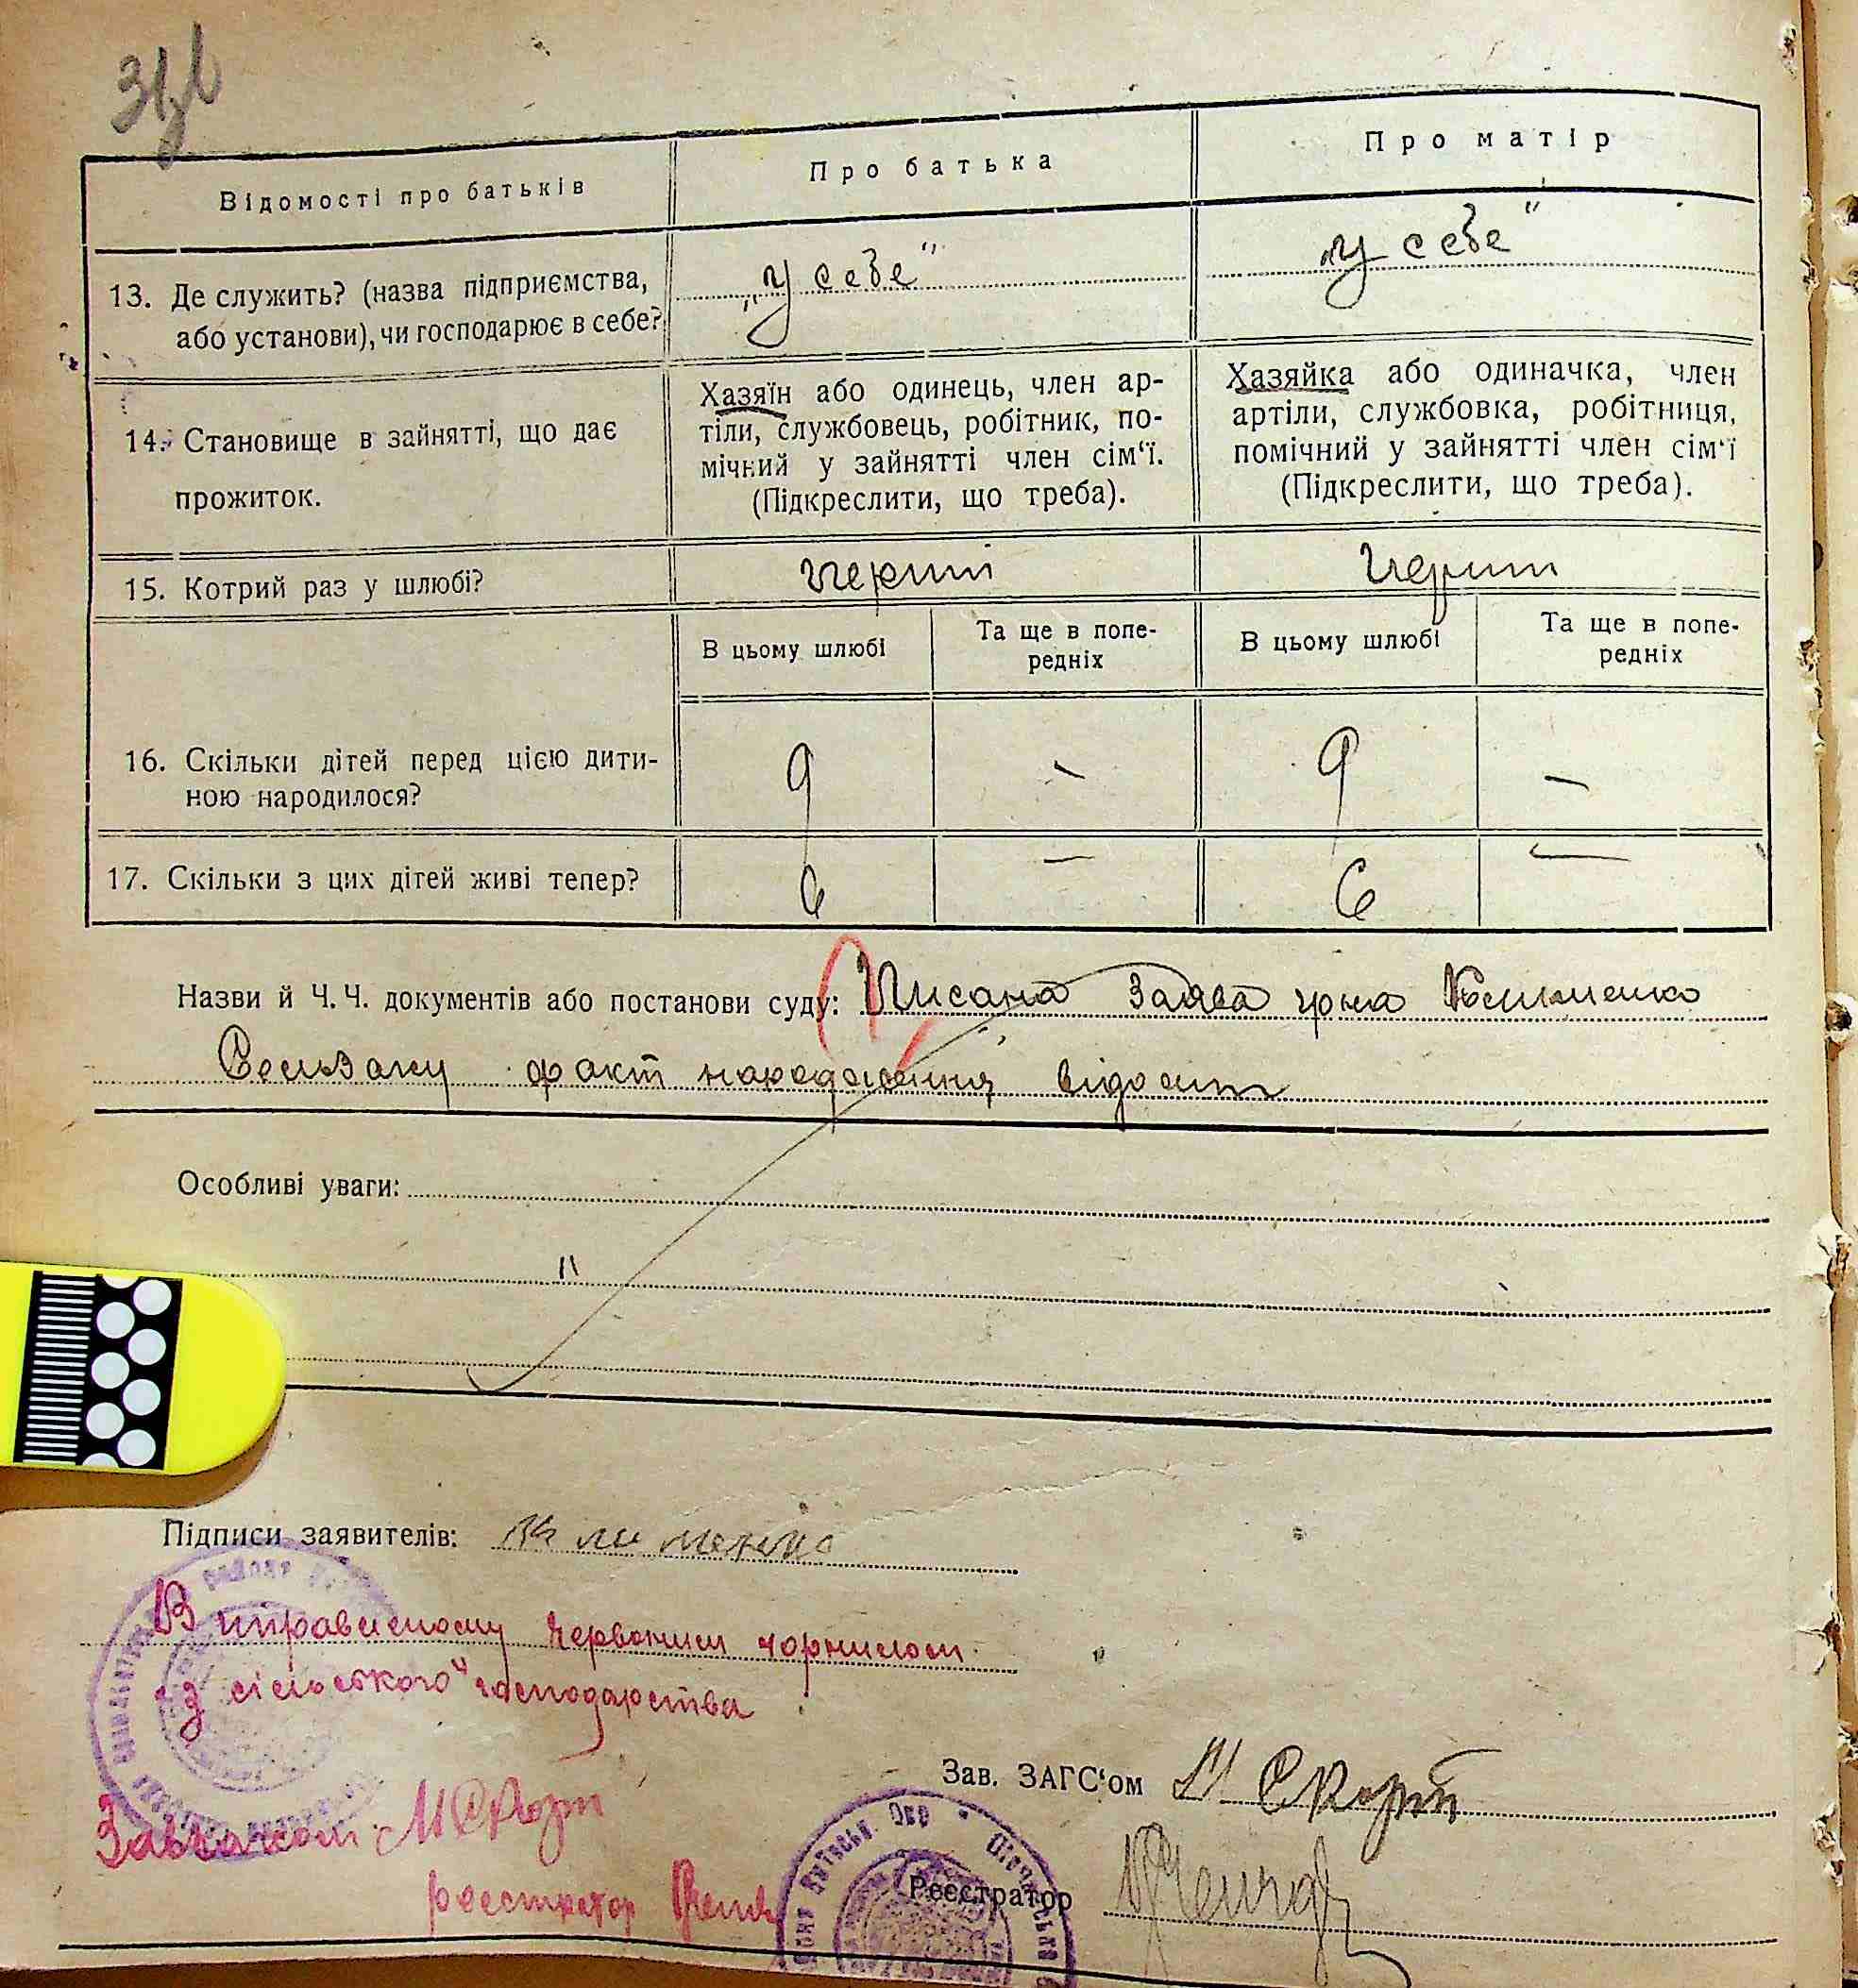 Відомості про батьків
Про батька
Про матір
13. Де служить? (назва підприємства,
або установи), чи господарює в себе?
„у себе“
„у себе“
14. Становище в зайнятті, що дає
прожиток.
Хазяїн або одинець, член ар-
тіли, службовець, робітник, по-
мічний у зайнятті член сім‘ї.
(Підкреслити, що треба).
Хазяйка або одиначка, член
артіли, службовка, робітниця,
помічний у зайнятті член сім‘ї
(Підкреслити, що треба).
15. Котрий раз у шлюбі?
В цьому шлюбі
Та ще в попе-
редніх
В цьому шлюбі
Та ще в попе-
редніх
16. Скільки дітей перед цією дити-
ною народилося?
9 – 9 –
17. Скільки з цих дітей живі тепер?
6 – 6 –
Назви й Ч.Ч. документів або постанови суду: Писана заява гр-на Клименко
факт народження
Особливі уваги:
"
Підписи заявителів: Клименко
В правленому червоним чорнилом
з сільського господарства
Зав. ЗАГС‘ом М Скорт
М Скорт
Реєстратор
реєстратор